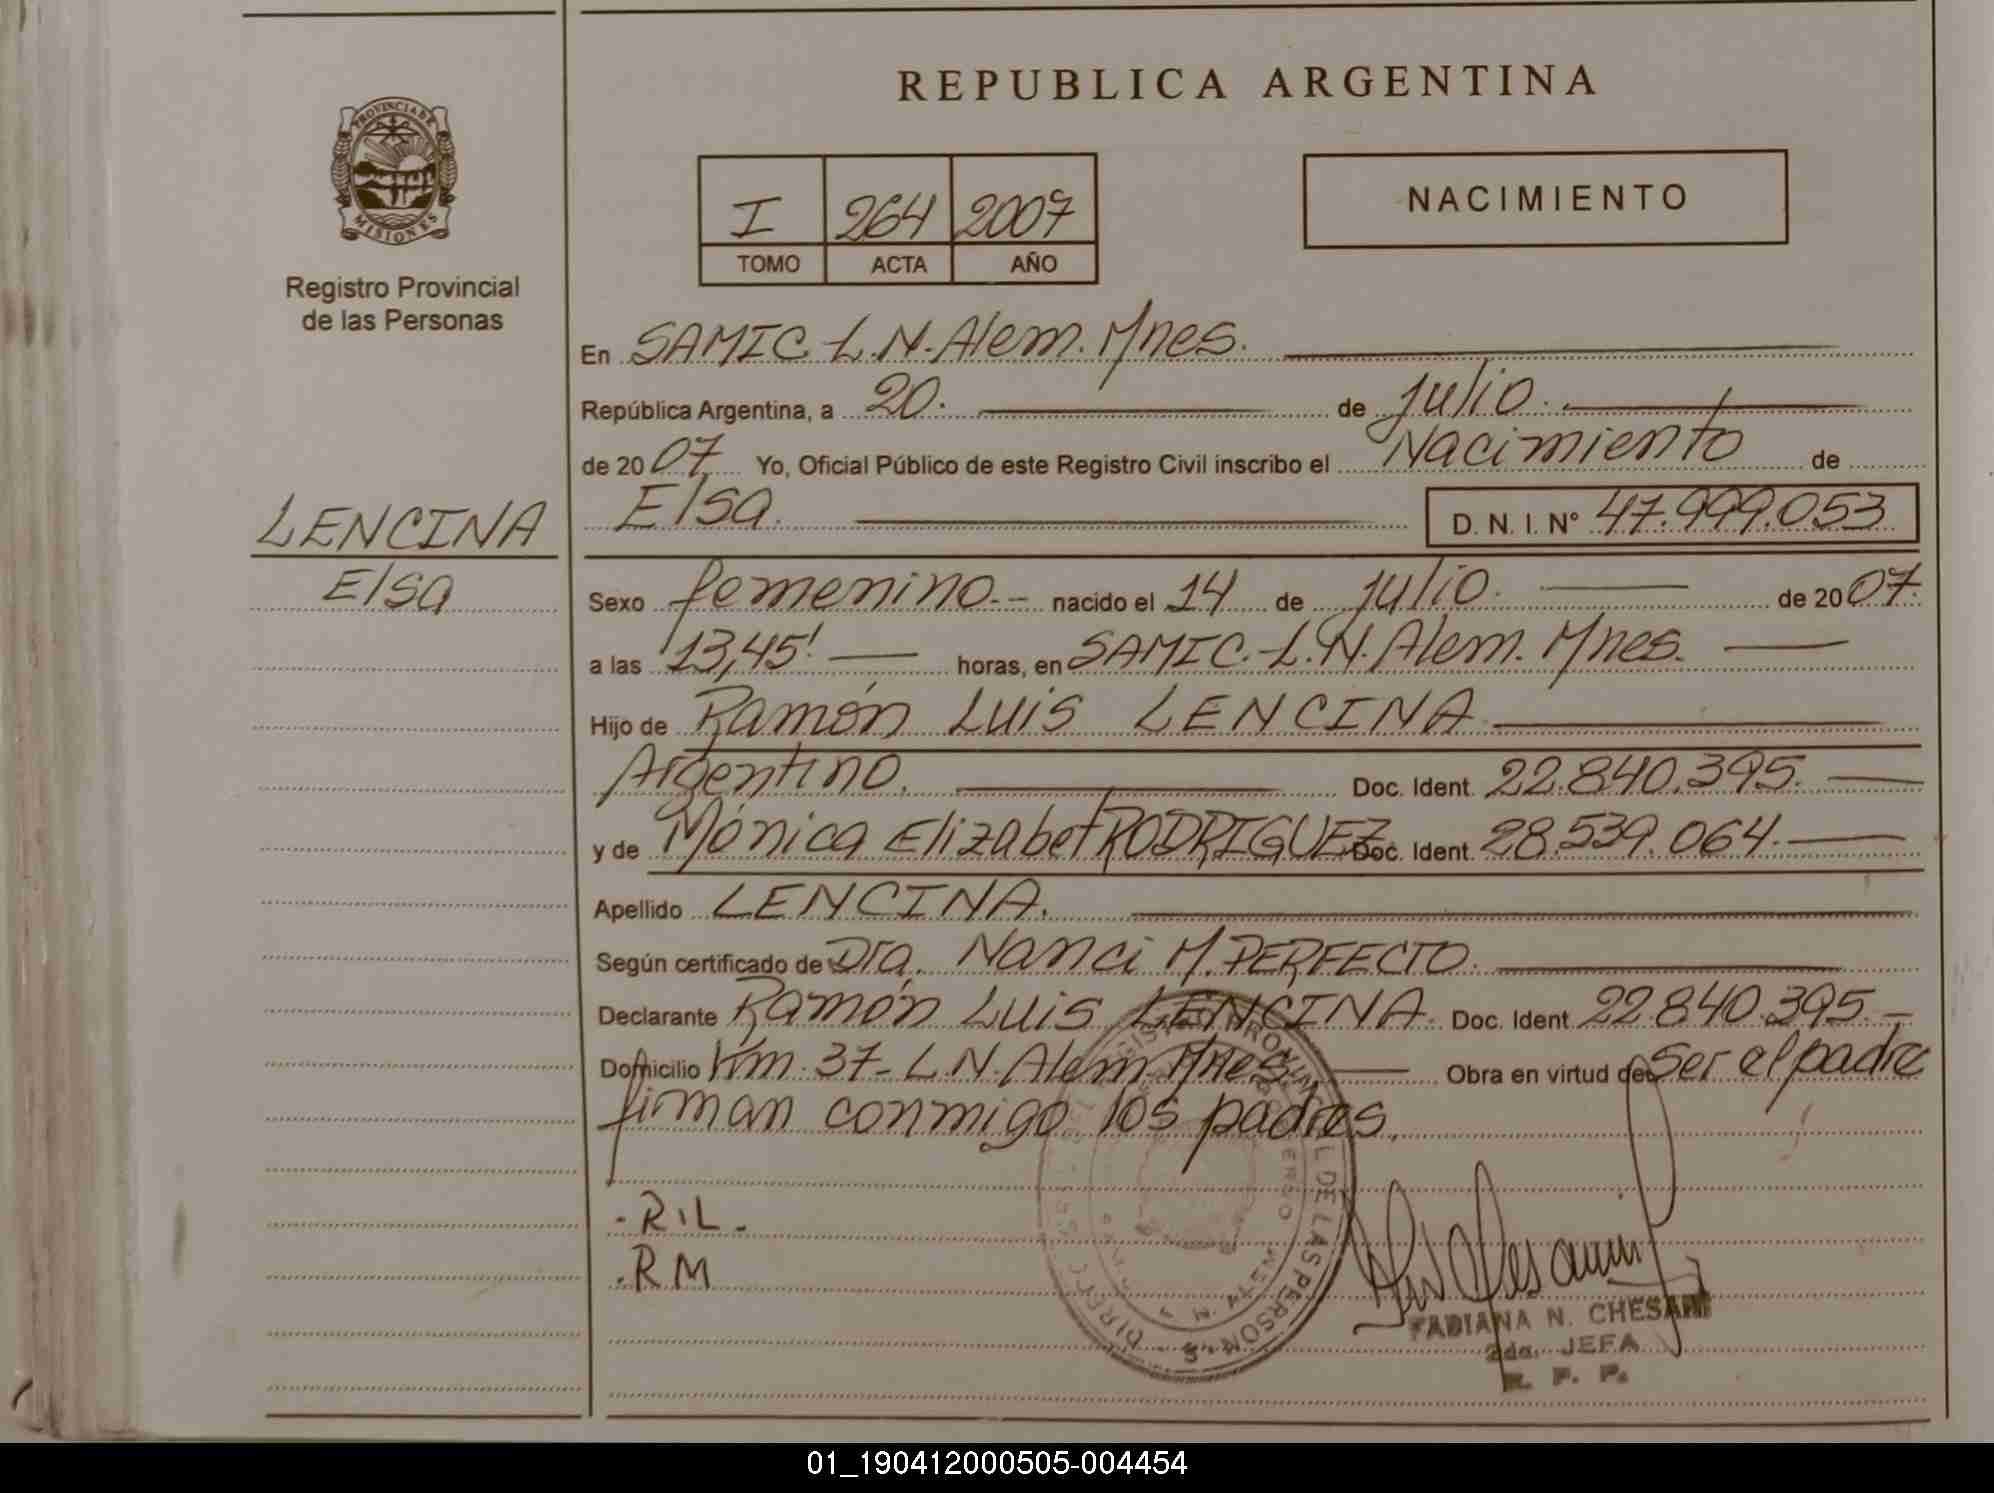 REPUBLICA ARGENTINA
PROVINCIA DE
MISIONES
Registro Provincial
de las Personas
I 264 2007
TOMO ACTA AÑO
NACIMIENTO
En SAMIC L.N. Alem. Mnes.
República Argentina, a 20. de julio.
de 2007 Yo, Oficial Público de este Registro Civil inscribo el Nacimiento de
Elsa. D. N. I. Nº 47.999.053
LENCINA
Elsa
Sexo femenino.- nacido el 14 de julio. de 2007.
a las 13,45' horas, en SAMIC. L.N. Alem. Mnes.
Hijo de Ramón Luis LENCINA
Argentino. Doc. Ident. 22.840.395.
y de Mónica Elizabet RODRIGUEZ Doc. Ident. 28.539.064.
Apellido LENCINA.
Según certificado de Dra. Nanci M. PERFECTO.
Declarante Ramón Luis LENCINA. Doc. Ident 22.840.395.-
Domicilio Km. 37- L.N. Alem. Mnes. Obra en virtud de Ser el padre
firman conmigo los padres.
PROVINCIAL DE LAS PERSONAS
N. ALEM
.R.L.
.RM
FABIANA N. CHESANI
2da. JEFA
R. P. P.
01_190412000505-004454